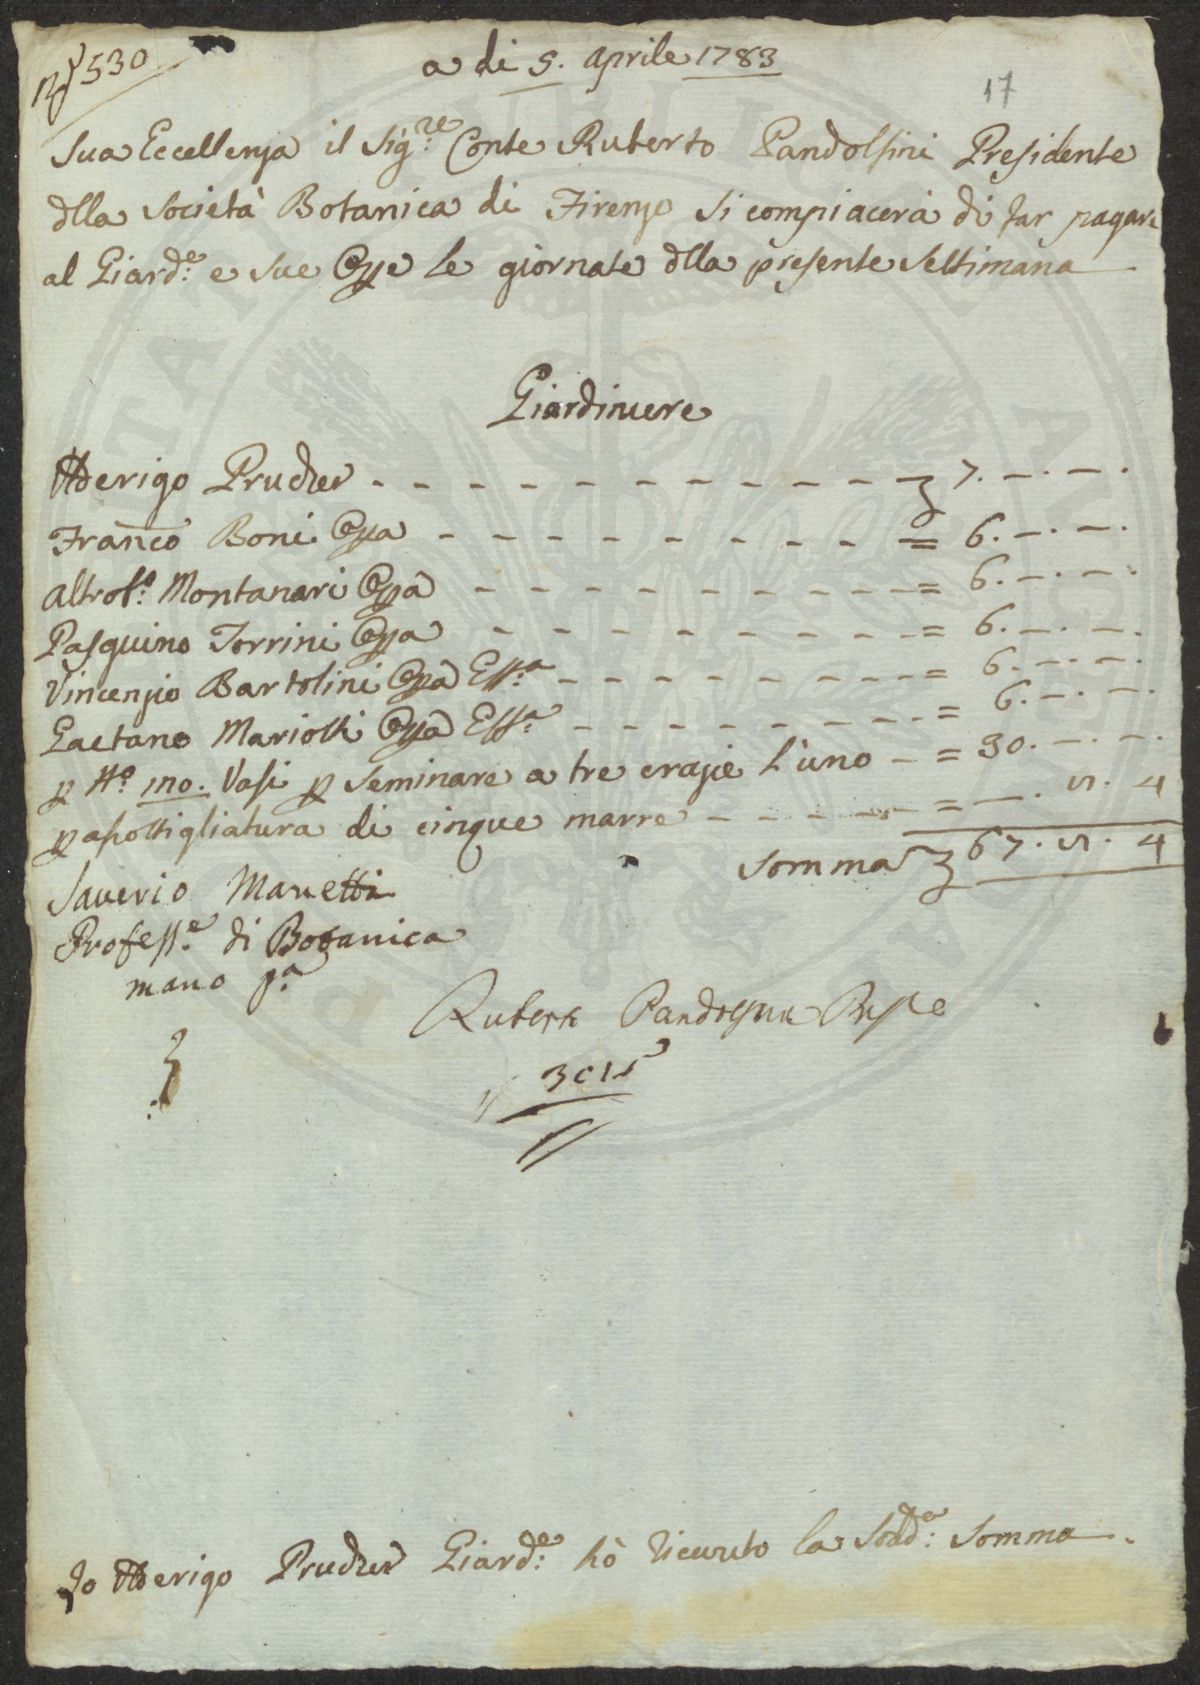 N° 530
a di 5. Aprile 1783
17
Sua Eccellenza il Sig:re Conte Ruberto Pandolfini Presidente
dlla Società Botanica di Firenze si compiacerà di far pagare
al Giard:e e sue Opre le giornate dlla presente Settimana
Giardiniere
Arrigo Prucker 7. — . — .
Franco Boni Opra = 6. — . — .
Montanari Opra = 6. — . — .
Pasquino Torrini Opra = 6. — . — .
Vincenzio Bartolini Opra Ess:a = 6. — . — .
Gaetano Mariotti Opra Ess:a = 6. — . — .
p N° Vasi p seminare a tre crazie l'uno = 30. — . — .
p aspottigliatura di cinque marre = — . 5. 4
Somma 67. 5. 4
Saverio Manetti
Profess:e di Botanica
mano pa
Ruberto Pandolfini Preste
Io Arrigo Prucker Giard:e hò ricevuto la Sodd:a Somma.